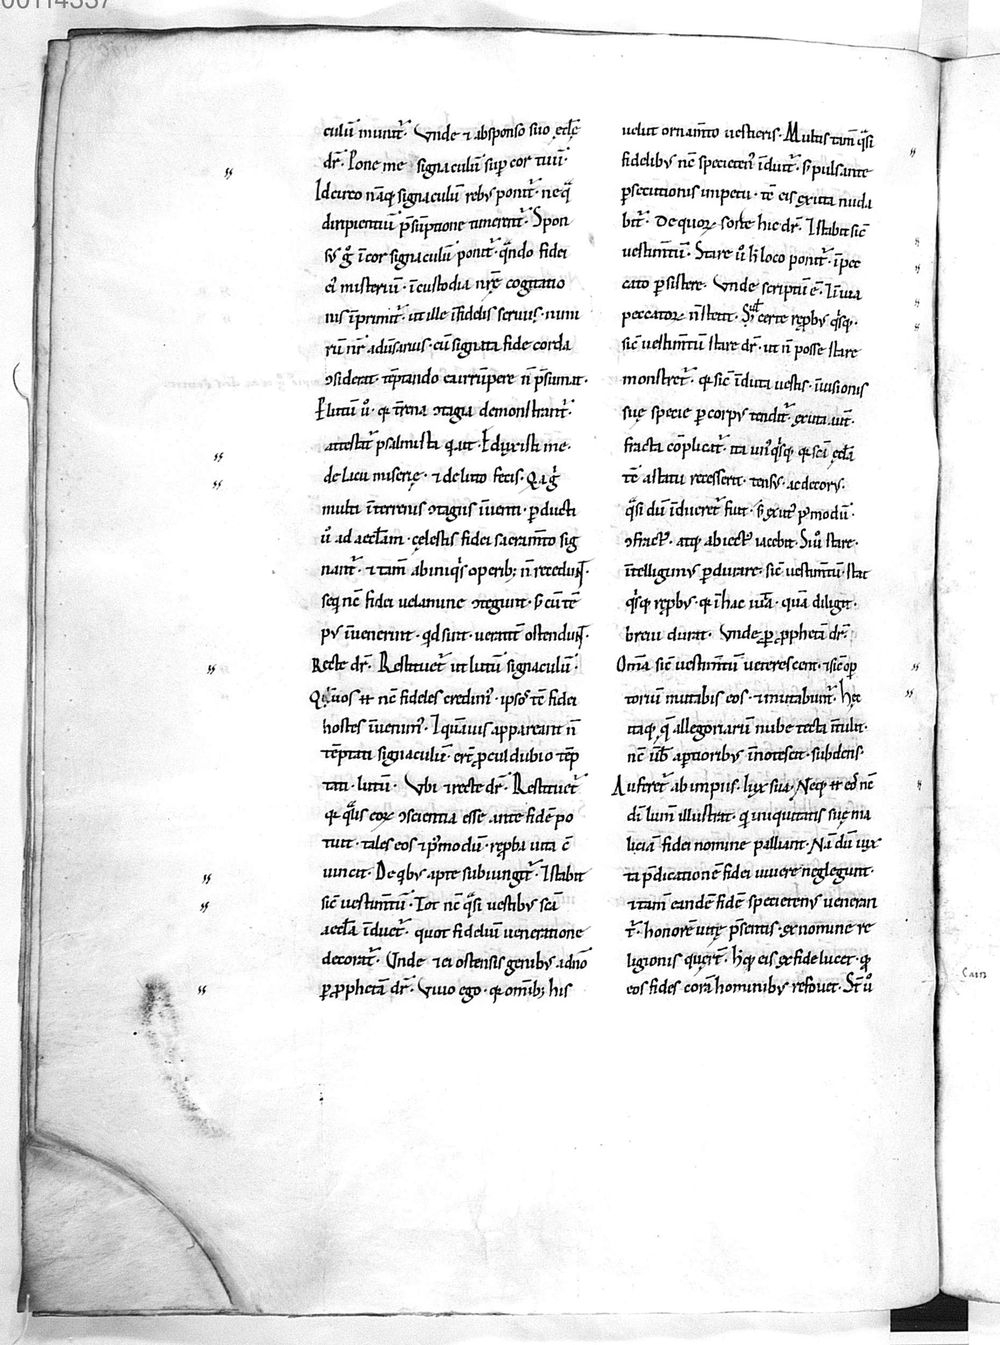 culū munit᷑. Vnde ⁊ absponso suo ęcłę
dr̄. Pone me signaculū sup̱ cor tuū.
Idcirco nāq; signaculū rebꝰ ponit᷑. neq̄
diripientiū p̄sūptione timerent᷑. Spon
sꝰ g̊ ī cor signaculū ponit᷑. q̄ndo fidei
ei misteriū. ī custodia nr̄ę cogitatio
nis īprimit᷑. ut ille īfidelis seruus. nimi
rū nr̄ aduersarius. cū signata fide corda
ꝯsiderat. tēptando currūpere n̄ p̄sumat.
P lutū ů. qđ t̄rena ꝯtagia demonstrant᷑.
attestat᷑ psalmista q. ait. Eduxisti me.
de lacu miserię. ⁊ de luto fecis. Qa g̊
multi ī terrenis ꝯtagiis īuenti. ꝑducti
ů ad aecl̄am. cęlestis fidei sacram̄to sig
nant᷑. ⁊ tam̄ ab iniq̊s operib; n̄ recedunt.
seq̊ nē fidei uelamine ꝯtegunt. s; cū tē
pꝰ īuenerint. qđ sunt. ueraciť ostendunt.
Recte dr̄. Restituet᷑ ut lutū signaculū.
Quos ꝶ nē fideles credim᷒. ipsos tē fidei
hostes īuenim᷒. I quāuis appareant n̄
tēptati signaculū. ert᷑ ꝓcul dubio tēp
tati. lutū. Vbi ⁊ recte dr̄. Restituet᷑
qđ q̄lis eoꝝ ꝯscientia esse ante fidē po
tuit. tales eos ⁊ p᷒modū. rep̱ba uita ē
uincit. De q̇bꝰ apte subiungit᷑. I stabit
sic̄ uestimtū. Tot nē q̄si uestibꝰ scā
aecl̄a īduet᷑. quot fideliū ueneratione
decorat᷑. Unde ⁊ ei ostensis gentibꝰ a dn̄o
ꝑ ꝓphetā dr̄. Viuo ego. qđ om̄ib; his
uelut ornam̄to uestieris. Multis tam̄ q̄si
fidelibꝰ nē specieten᷒ īduit᷑. s; pulsante
p̱secutionis impetu. tē eis exuta nuda
bit᷑. De quoꝝ sorte hic dr̄. I stabit sic̄
uestimtū. Stare ů h̊ loco ponit᷑. ī pec
cato ꝑsistere. Vnde scriptū ē. In uia
peccatoꝝ n̄ stetit. Si ut certe rep̱bꝰ q̊sq;.
sic̄ uestimtū stare dr̄. ut n̄ posse stare
monstret᷑. qđ sic̄ īduta uestis. īuisionis
suę specie ꝑ corpꝰ tendit᷑. exuta aut̄.
fracta cōplicat᷑. ita un᷒q̊sq; qđ scā ęcł̄a
tē a statu recesserit. tensꝰ ac decorꝰ.
q̄si dū īdueret᷑ fuit. s; exut᷒ p᷒modū.
ꝯfract᷒. atq; abiect᷒ iacebit. Si ů stare.
ītelligim᷒ ꝑdurare. sic̄ uestimtū stat
q̊sq; rep̱bꝰ. qđ ī hac uita. quā diligit.
breui durat. Vnde ꝑ ꝓphetā dr̄.
Om̄a sic̄ uestimtū ueterescent. ⁊ sic̄ op̱
toriū mutabis eos. ⁊ mutabunt᷑. Hęc
itaq; q̄ allegoriarū nube tecta ītulit.
nē u̇b aptioribꝰ īnotescit. subdens.
Auferet᷑ ab impiis. lux sua. Neq; ꝶ eos nē
dī lum̄ illustrat. qi iniquitatis suę ma
liciā fidei nomine palliant. Nā dū iux
ta p̄dicationē fidei uiuere neglegunt.
⁊ tam̄ eandē fidē specietenꝰ ueneran
t᷑. honorē uitę p̄sentis. ex nomine re
ligionis querūt. hq; eis ex fide lucet. qi
eos fides corā hominibꝰ refouet. St̄ ů
Cain